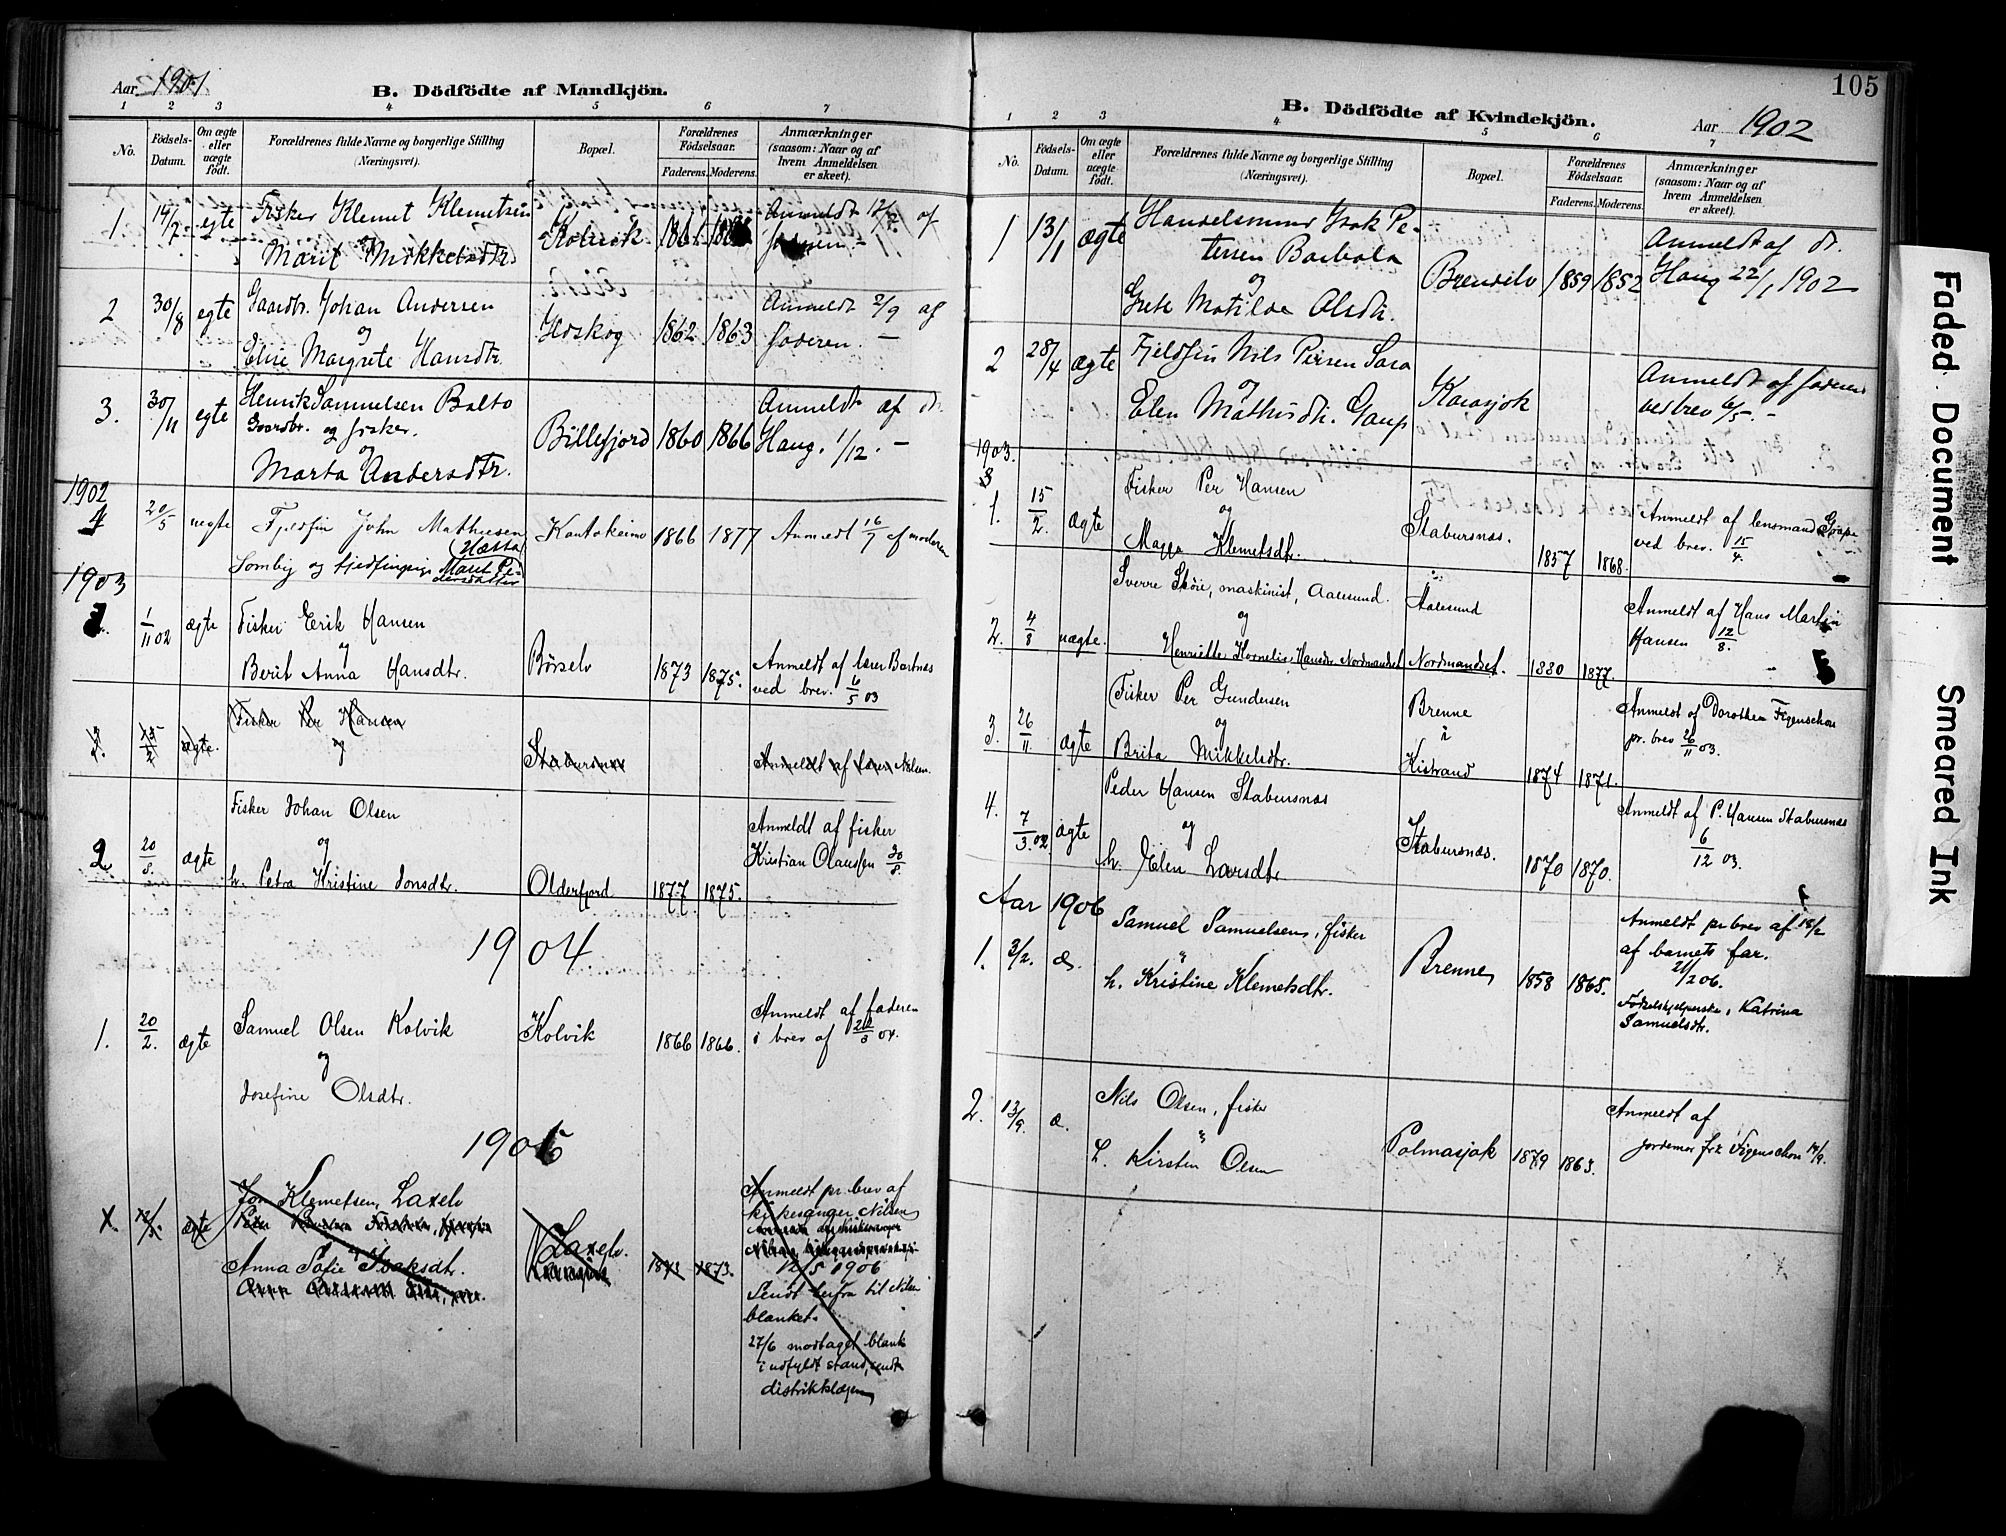 Aar 1901
B. Dödfödte af Mandkjön.
1 2 3 4 5 6 7
No.
Födsels-
Datum.
Om ægte
eller
uægte
födt.
Forældrenes fulde Navne og borgerlige Stilling
(Næringsvei).
Bopæl.
Forældrenes
Födselsaar.
Faderens. Moderens.
Anmærkninger
(saasom: Naar og af
hvem Anmeldelsen
er skeet).
1. 14/7 egte Fisker Klemet Klemetsen
og
Marit Mikkelsdtr. Kolvik
Anmeldt af
faderen
2 30/8 egte Gaardbr. Johan Andersen
og
Elise Margrete Hansdtr. 1862 1863
Anmeldt 2/9 af
faderen. -
3. 30/11 egte Henrik Samuelsen Balto
Gaardbr. og fisker.
og
Marta Andersdtr. Billefjord 1860 1866
Anmeldt af dr.
Haug. 1/12. -
1902
4 20/5 uegte Fjeldfin John Mathesen
Somby og fjeldfinpige Marit Pe-
dersdatter Kautokeino 1866 1877 Anmeldt 16/7 af moderen
1903
1. 1/11 02 ægte Fisker Erik Hansen
og
Berit Anna Hansdtr. Börselv 1873 1875.
Anmeldt af lærer Bartnæs
ved brev. 6/5 03
2. 15/2 ægte. Fisker Per Hansen
og
Stabursnæs
Anmeldt af læns. Nilsen.
2 20/8. ægte Fisker Johan Olsen
og
h. Petra Kristine Jonsdtr. Olderfjord 1877 1875.
Anmeldt af fisker
Kristian Olaussen 30/8.
1904
1. 20/2. ægte Samuel Olsen Kolvik
og
Josefine Olsdtr. Kolvik 1866 1866.
Anmeldt af faderen
i brev af 04.
1906
Jon Klemetsen, Laxelv
Anna Sofie Isaksdtr.
Laxelv.
1873 1873.
Anmeldt pr. brev af
kirkesanger Nilsen
12/5 1906
Sendt herfra til Nilsen
blanket.
27/6 modtaget blank
i udfyldt stand, sendt
distriktslægen
105
B. Dödfödte af Kvindekjön.
Aar 1902
1 2 3 4 5 6 7
No.
Födsels-
Datum.
Om ægte
eller
uægte
födt.
Forældrenes fulde Navne og borgerlige Stilling
(Næringsvei).
Bopæl.
Forældrenes
Födselsaar.
Faderens. Moderens.
Anmærkninger
(saasom: Naar og af
hvem Anmeldelsen
er skeet).
1 13/1 ægte Handelsmand Isak Pe-
tersen Barbala
og
Grete Matilde Olsdtr. Brendelv 1859 1852
Anmeldt af dr.
Haug 22/1 1902
2 28/4 ægte Fjeldfin Nils Persen Sara
og
Elen Mathisdtr. Gaup Karasjok
Anmeldt af faderen
ved brev 6/5. -
1903.
1. 15/2. ægte Fisker Per Hansen
og
Magga Klemetsdtr. Stabursnæs. 1857 1868.
Anmeldt af lensmand Grape
ved brev. 15/4.
2. 4/8 uægte. Sverre Sköie, maskinist, Aalesund.
og
Henriette Kornelie Hansdr. Nordmandset
Aalesund
Nordmandset. 1880 1877.
Anmeldt af Hans Martin
Hansen 12/8.
3. 26/11 ægte Fisker Per Gundersen
og
Brita Mikkelsdtr. Brenne
i
Kistrand 1874 1871.
Anmeldt af Dorothea Figenschou
pr. brev 26/11 03.
4. 7/3.02 ægte Peder Hansen Stabursnæs
og
h. Elen Larsdtr. Stabursnæs. 1870 1870.
Anmeldt af P. Hansen Stabursnæs
6/12 03.
Aar 1906
1. 3/2. æ. Samuel Samuelsen, fisker
h. Kristine Klemetsdtr. Brenne 1858 1865.
Anmeldt pr brev af 18/2
af barnets far.
21/2 06.
Födselshjelperske: Katrina
Samuelsdtr.
2. 13/9. æ. Nils Olsen, fisker
h. Kirsten Olsen Polmasjok 1879 1863.
Anmeldt af
jordemor frk Figenschou 14/9.
Faded Document
Smeared Ink